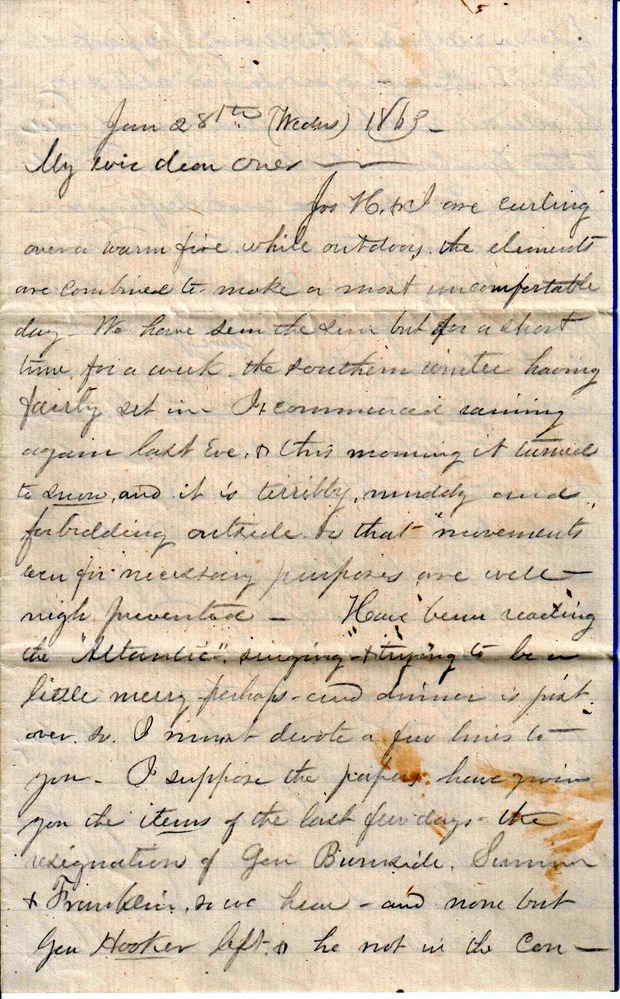 Jan 28th (Weds) 1863 -
My dear ones
Jos H. & I are curling
over a warm fire while outdoors the elements
are combined to make a most uncomfortable
day - We have seen the sun but for a short
time for a week, the southern winter having
fairly set in - It commenced raining
again last Eve, & this morning it turned
to snow, and it is terribly muddy and
forbidding outside so that "movements"
even for necessary purposes are well-
nigh prevented - Have been reading
the "Atlantic", singing & trying to be a
little merry perhaps - and dinner is just
over. so I must devote a few lines to
you - I suppose the papers have given
you the items of the last few days - the
resignation of Gen Burnside, Sumner
& Franklin, so we hear - and none but
Gen Hooker left & he not in the Con -